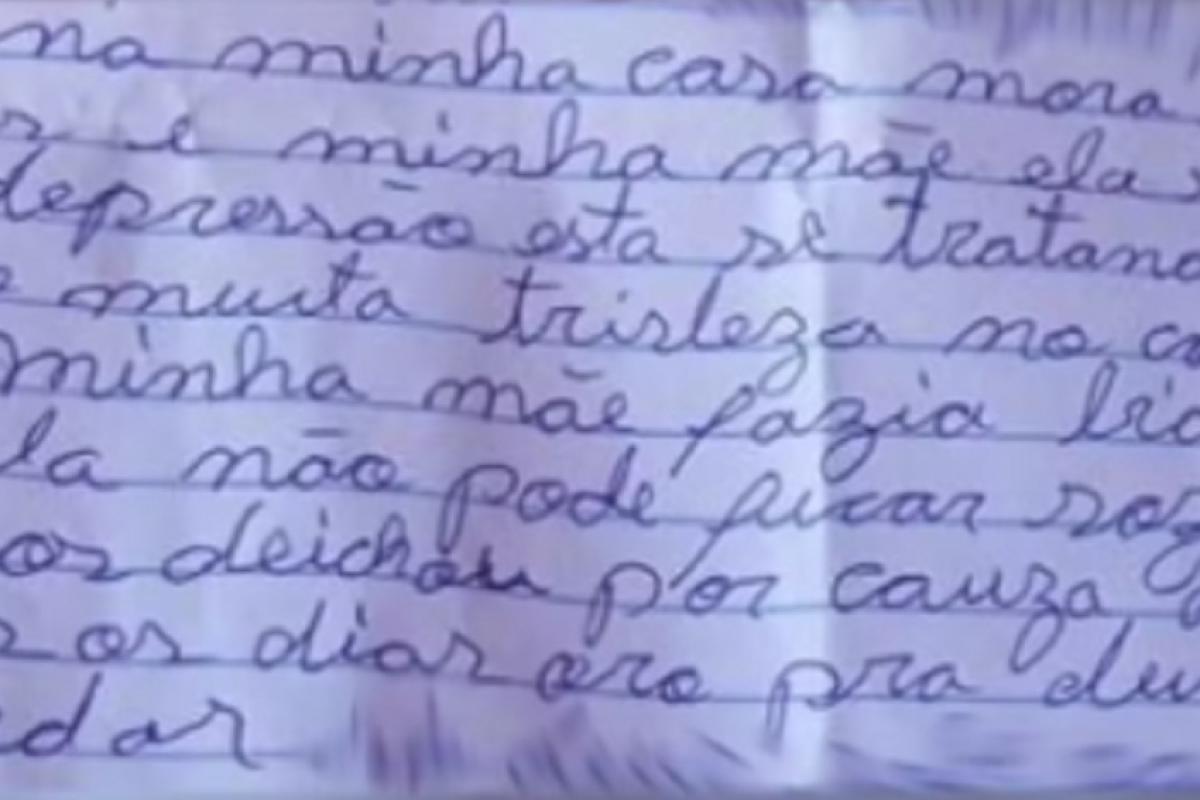 na minha casa mora
e minha mãe ela
depressão esta se tratand
muita tristeza no co
minha mãe fazia
la não pode ficar soz
os deichou por cauza
os dias ero pra
dar